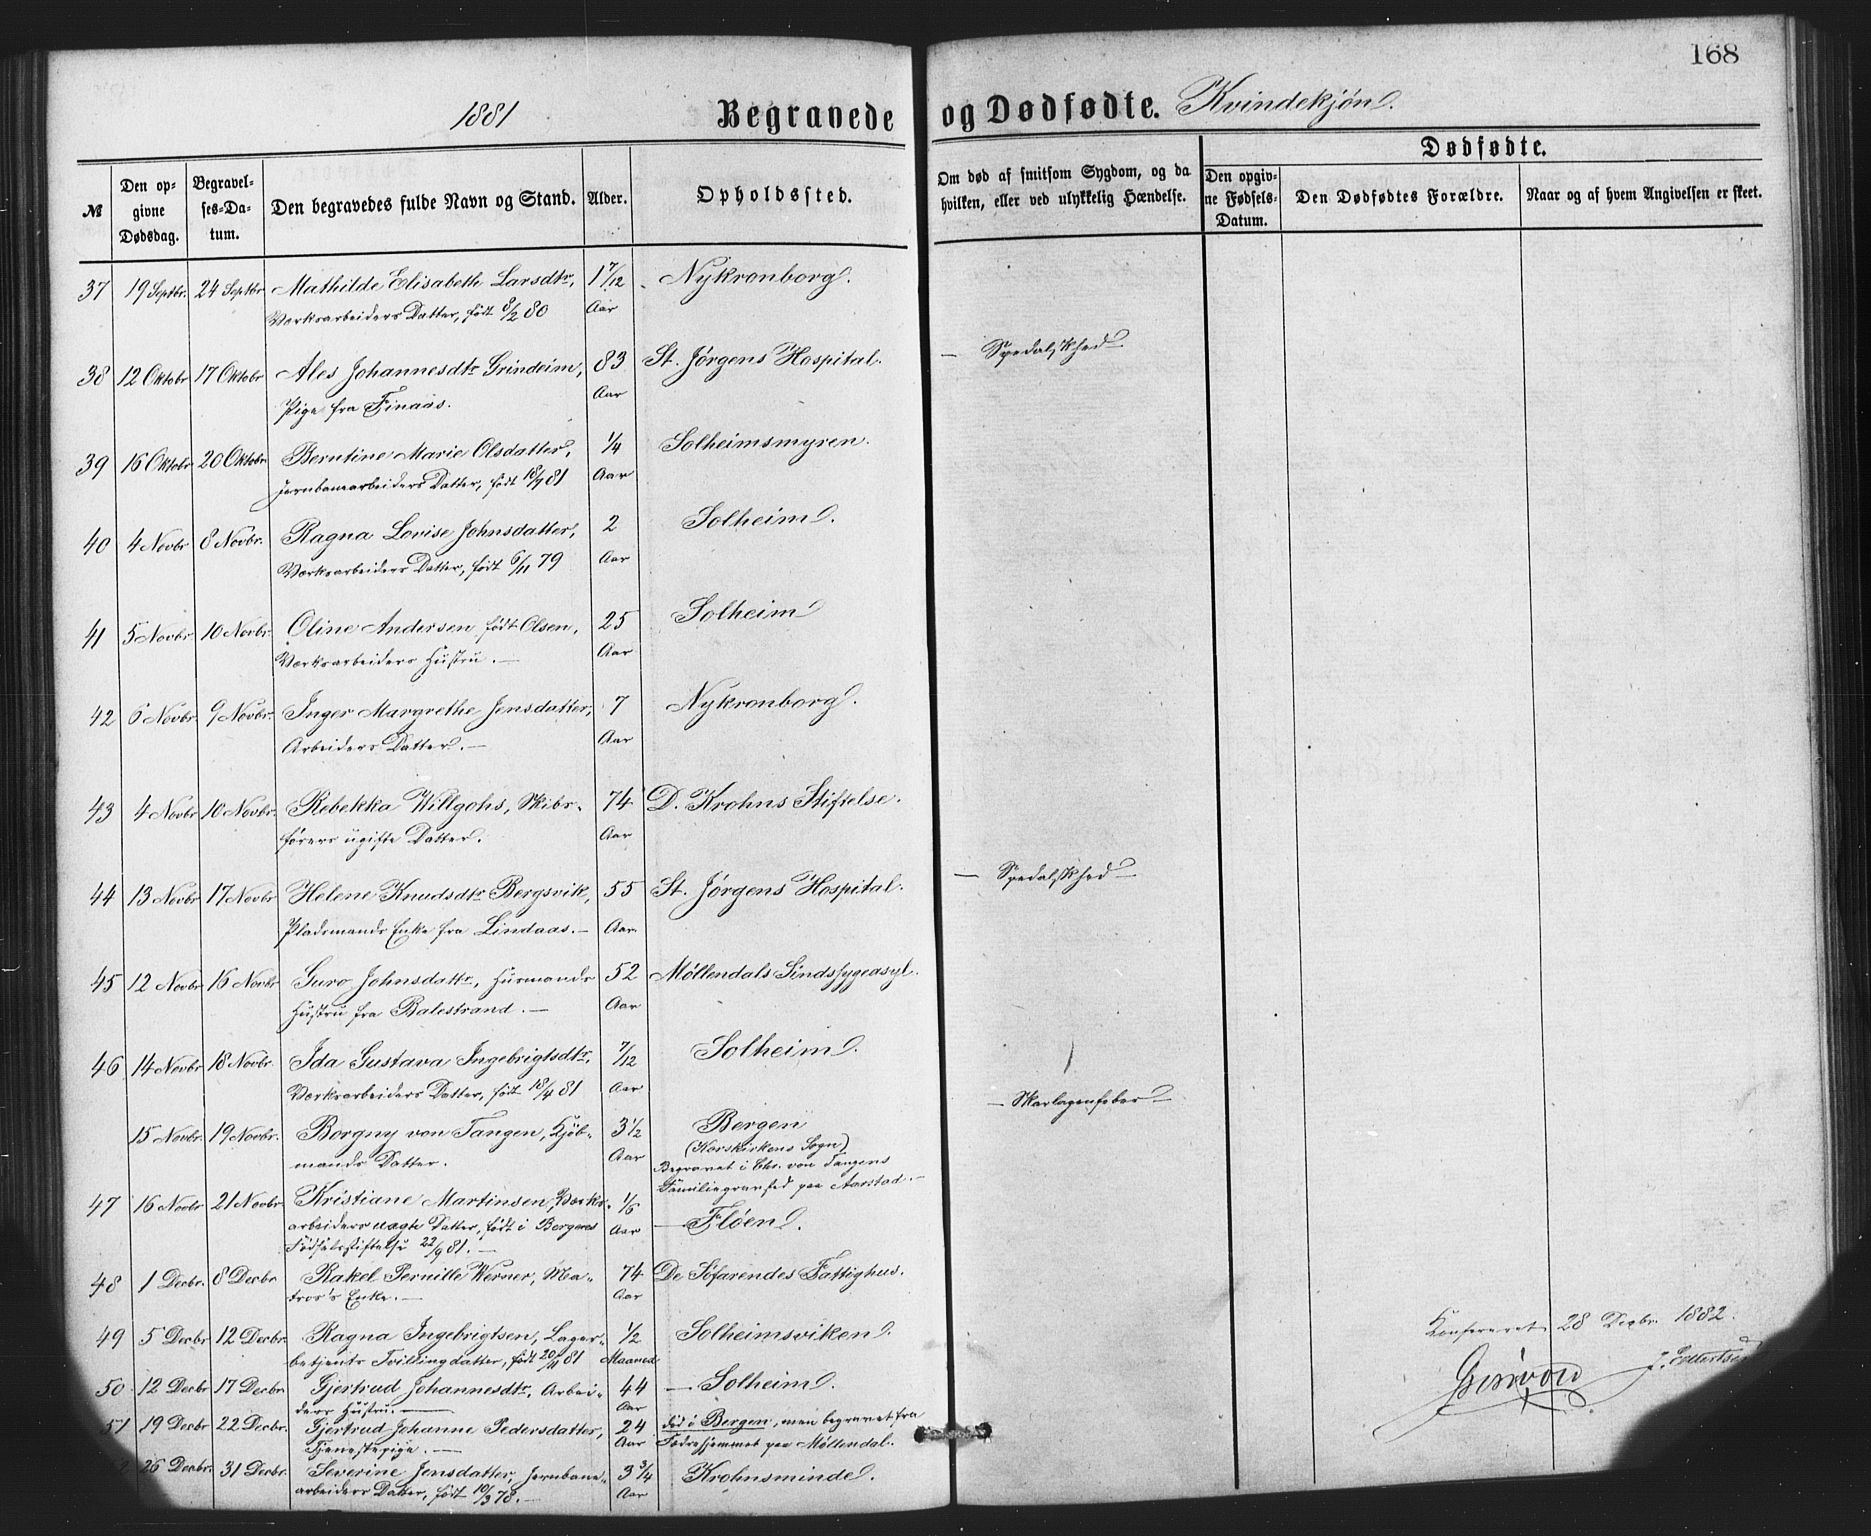 168
1881 Begravede og Dødfødte. Kvindekjøn.
№
Den opgivne Dødsdag.
Begravelses-Datum.
Den begravedes fulde Navn og Stand.
Alder.
Opholdssted.
Om død af smitsom Sygdom, og da hvilken, eller ved ulykkelig Hændelse.
Dødfødte.
Den opgivne Fødsels-Datum.
Den Dødfødtes Forældre.
Naar og af hvem Angivelsen er skeet.
37 19 Septbr. 24 Septbr Mathilde Elisabeth Larsdtr, 1 7/12 Nykronborg.
Værksarbeiders Datter, født 8/2 80 Aar
38 12 Oktobr 17 Oktobr Ales Johannesdtr Grindeim, 83 St. Jørgens Hospital. — Spedalskhed —
Pige fra Finaas. Aar
39 16 Oktobr 20 Oktobr Berntine Marie Olsdatter, 1/4 Solheimsmyren.
Jernbanearbeiders Datter, født 18/7 81 Aar
40 4 Novbr 8 Novbr. Ragna Lovise Johnsdatter, 2 Solheim.
Værksarbeiders Datter, født 6/11 79 Aar
41 5 Novbr 10 Novbr. Oline Andersen født Olsen, 25 Solheim
Værksarbeiders Hustru. — Aar
42 6 Novbr 9 Novbr. Inger Margrethe Jensdatter, 7 Nykronborg.
Arbeiders Datter. — Aar
43 4 Novbr 10 Novbr. Rebekka Willgohs, Skibs- 74 D. Krohns Stiftelse.
førers ugifte Datter. Aar
44 13 Novbr 17 Novbr Helene Knudsdtr Bergsvik, 55 St. Jørgens Hospital. — Spedalskhed —
Pladsmands Enke fra Lindaas. — Aar.
45 12 Novbr 16 Novbr Guro Johnsdattr, Husmands 52 Møllendals Sindssygeasyl.
Hustru fra Balestrand. — Aar
46 14 Novbr 18 Novbr. Ida Gustava Ingebrigtsdtr, 7/12 Solheim.
Værksarbeiders Datter, født 18/4 81 Aar
— Skarlagensfeber —
15 Novbr. 19 Novbr. Borgny von Tangen, Kjøb- 3 1/2 Bergen
mands Datter. Aar (Korskirkens Sogn)
Begravet i Chr. von Tangens
Familiegravsted paa Aarstad. —
47 16 Novbr 21 Novbr Kristiane Martinsen, Værks- 1/6 — Fløen.
arbeiders uægte Datter, født i Bergens Aar
Fødselsstiftelse 22/9 81. —
48 1 Decbr. 8 Decbr Rakel Pernille Werner, Ma- 74 De Søfarendes Fattighus.
tros's Enke. — Aar
49 5 Decbr 12 Decbr. Ragna Ingebrigtsen, Lager- 1/2 Solheimsviken.
betjents Tvillingdatter, født 20/11 81 Maaned
50 12 Decbr 17 Decbr Gjertrud Johannesdtr, Arbei- 44 — Solheim.
ders Hustru. — Aar
51 19 Decbr 22 Decbr. Gjertrud Johanne Pedersdatter, 24 død i Bergen, men begravet fra
Tjenestepige. — Aar Fødehjemmet paa Møllendal.
2 26 Decbr. 31 Decbr. Severine Jensdatter, Jernbane- 3 3/4 Krohnsminde.
arbeiders Datter, født 10/3 78. — Aar
Konfereret 28 Decbr. 1882.
J. Ellertsen